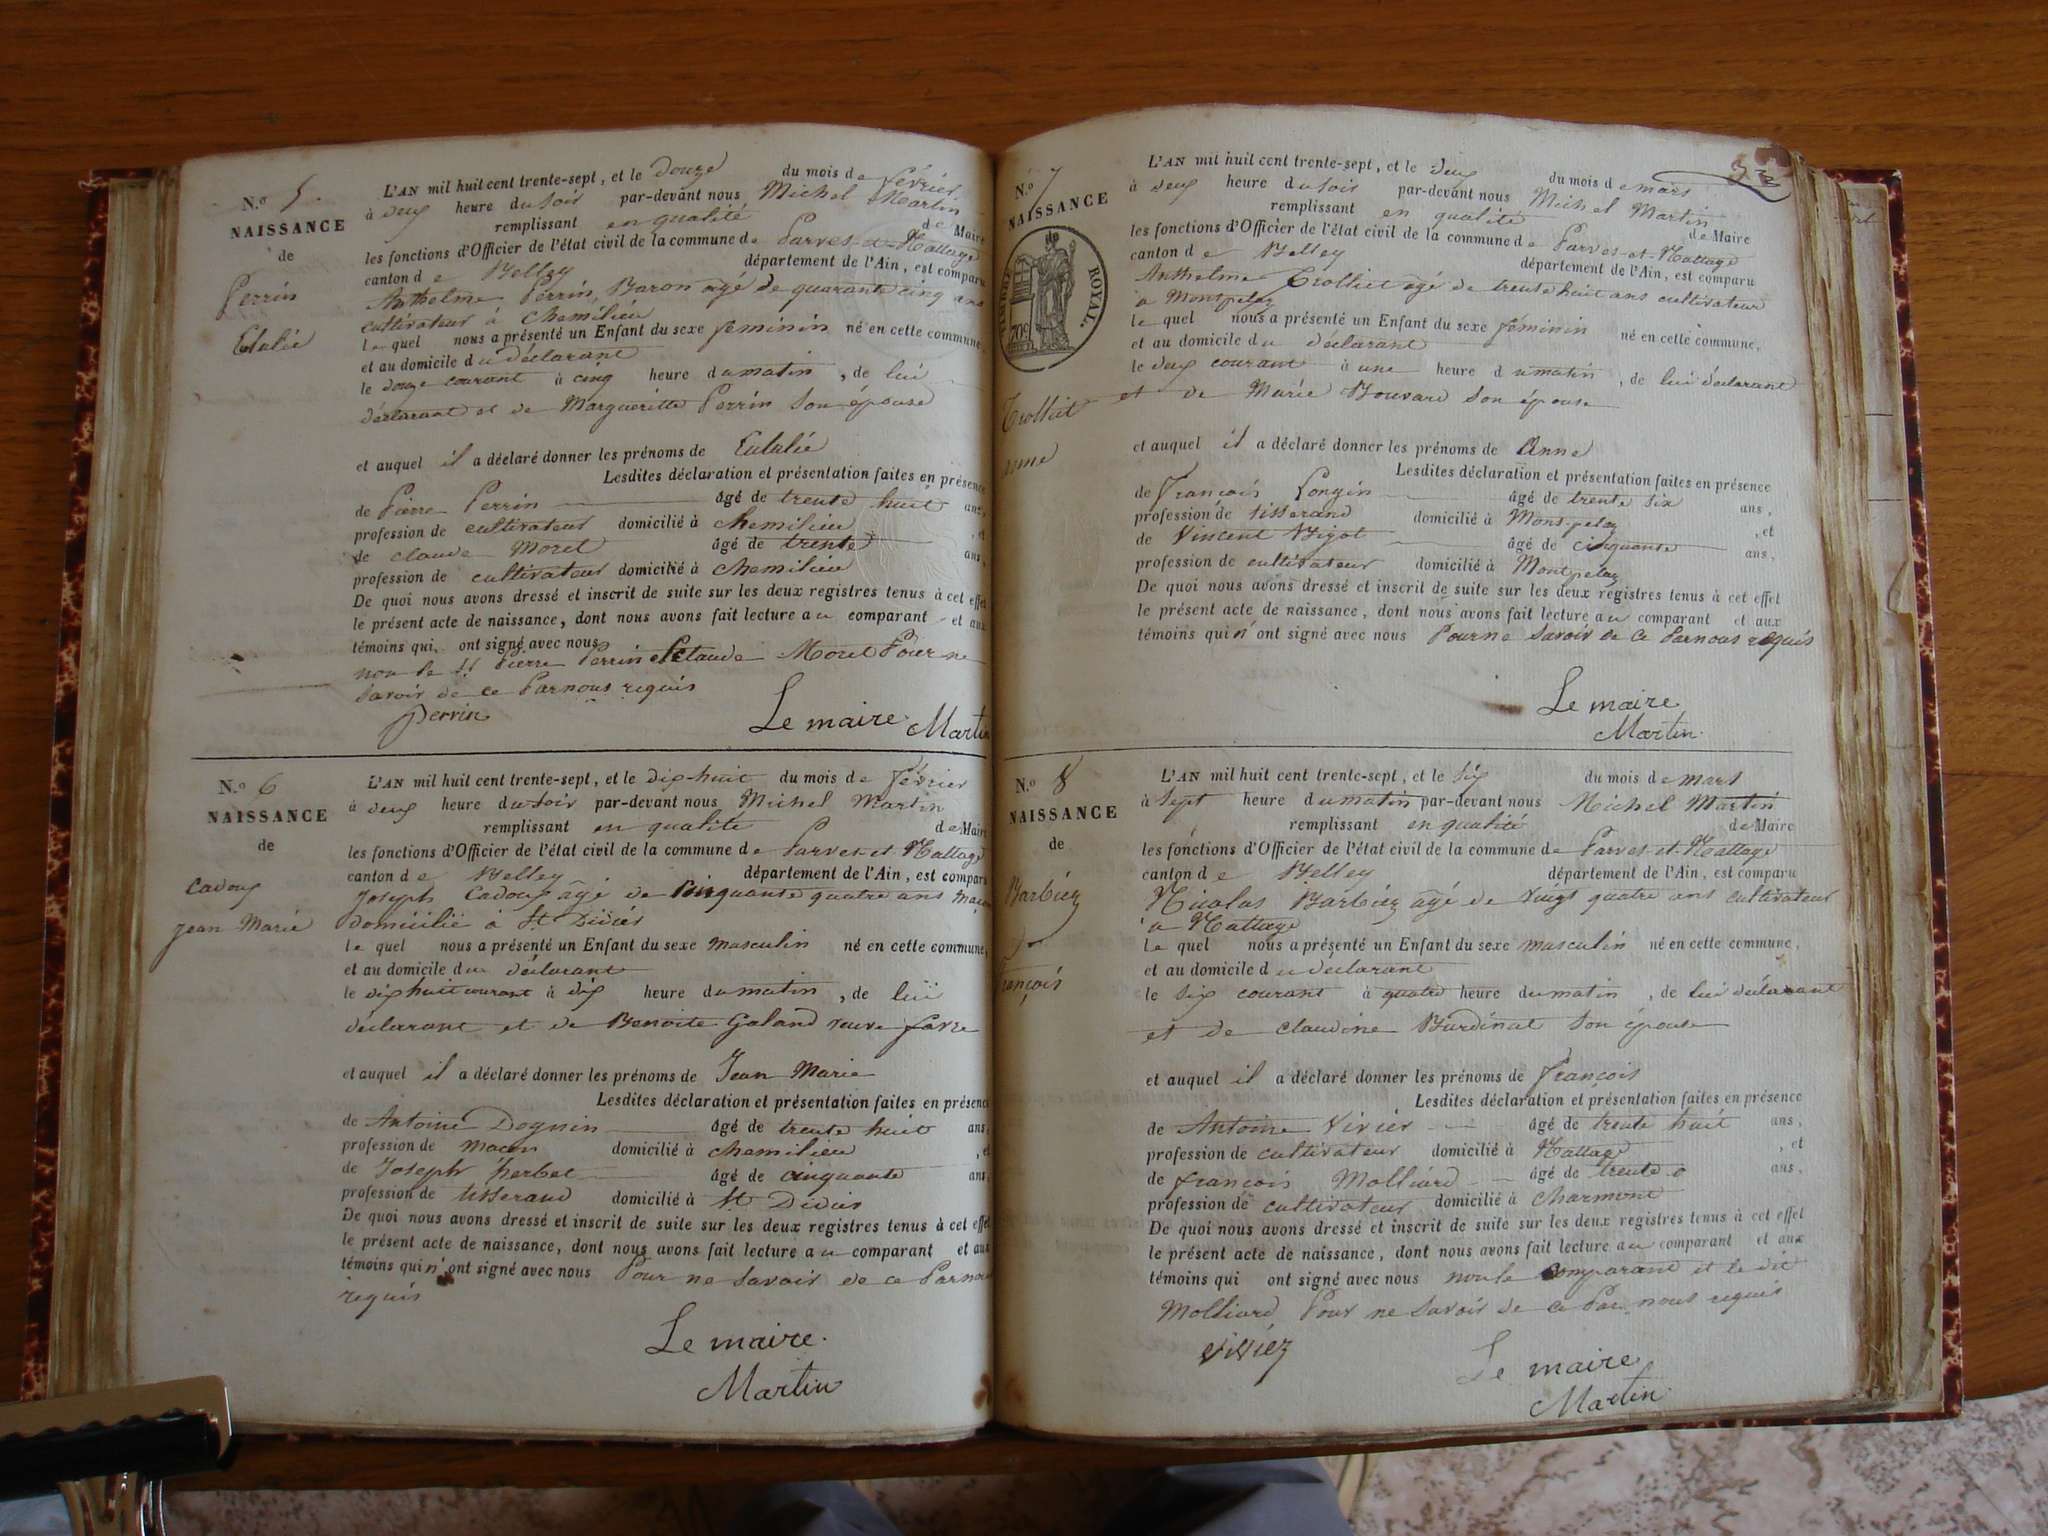 N.o 5
NAISSANCE
de
Perrin
Eulalie
L'AN mil huit cent trente-sept, et le Douze du mois de février
à deux heure du soir par-devant nous Michel Martin
remplissant en qualité de Maire
les fonctions d'Officier de l'état civil de la commune de Parves-et-Nattage
canton de Belley département de l'Ain, est comparu
Anthelme Perrin, Baron agé de quarante cinq ans
cultivateur à Chemilieu
le quel nous a présenté un Enfant du sexe feminin né en cette commune,
et au domicile du déclarant
le douze courant à cinq heure du matin, de lui
déclarant et de Margueritte Perrin son épouse
et auquel il a déclaré donner les prénoms de Eulalie
Lesdites déclaration et présentation faites en présence
de Pierre Perrin âgé de trente huit ans,
profession de cultivateur domicilié à Chemilieu, et
de claude Moret âgé de trente ans,
profession de cultivateur domicilié à chemilieu
De quoi nous avons dressé et inscrit de suite sur les deux registres tenus à cet effet
le présent acte de naissance, dont nous avons fait lecture au comparant et aux
témoins qui ont signé avec nous
non le dt Pierre Perrin et Claude Moret Pour ne
savoir de ce Par nous requis
Perrin Le maire Martin
N.o 6
NAISSANCE
de
Cadoux
jean Marie
L'AN mil huit cent trente-sept, et le dix-huit du mois de février
à deux heure du soir par-devant nous Michel Martin
remplissant en qualité de Maire
les fonctions d'Officier de l'état civil de la commune de Parves-et-Nattage
canton de Belley département de l'Ain, est comparu
Joseph Cadoux âgé de Cinquante quatre ans maçon
domicilié à St Didier
le quel nous a présenté un Enfant du sexe masculin né en cette commune,
et au domicile du déclarant
le dix huit courant à dix heure du matin, de lui
déclarant et de Benoite Galand veuve favre
et auquel il a déclaré donner les prénoms de Jean Marie
Lesdites déclaration et présentation faites en présence
de Antoine Dognin âgé de trente huit ans,
profession de maçon domicilié à chemilieu, et
de Joseph herbet âgé de cinquante ans,
profession de tisserand domicilié à St Didier
De quoi nous avons dressé et inscrit de suite sur les deux registres tenus à cet effet
le présent acte de naissance, dont nous avons fait lecture au comparant et aux
témoins qui n'ont signé avec nous Pour ne savoir de ce Par nous
requis
Le maire
Martin
N.o 7
NAISSANCE
TIMBRE ROYAL.
70c
Trolliet
anne
L'AN mil huit cent trente-sept, et le deux du mois de mars
à deux heure du soir par-devant nous Michel Martin
remplissant en qualité de Maire
les fonctions d'Officier de l'état civil de la commune de Parves-et-Nattage
canton de Belley département de l'Ain, est comparu
Anthelme Trolliet agé de trente huit ans cultivateur
à Montpelaz
le quel nous a présenté un Enfant du sexe féminin né en cette commune,
et au domicile du déclarant
le deux courant à une heure du matin, de lui déclarant
et de Marie Bouvard son épouse
et auquel il a déclaré donner les prénoms de Anne
Lesdites déclaration et présentation faites en présence
de François Longin âgé de trente six ans,
profession de tisserand domicilié à Montpelaz, et
de Vincent Bigot âgé de cinquante ans,
profession de cultivateur domicilié à Montpelaz
De quoi nous avons dressé et inscrit de suite sur les deux registres tenus à cet effet
le présent acte de naissance, dont nous avons fait lecture au comparant et aux
témoins qui n'ont signé avec nous Pour ne savoir de ce Par nous requis
Le maire
Martin
N.o 8
NAISSANCE
de
Barbiez
françois
L'AN mil huit cent trente-sept, et le six du mois de mars
à sept heure du matin par-devant nous Michel Martin
remplissant en qualité de Maire
les fonctions d'Officier de l'état civil de la commune de Parves-et-Nattage
canton de Belley département de l'Ain, est comparu
Nicolas Barbiez agé de vingt quatre ans cultivateur
à Nattage
le quel nous a présenté un Enfant du sexe masculin né en cette commune,
et au domicile du déclarant
le six courant à quatre heure du matin, de lui déclarant
et de claudine Burdinat son épouse
et auquel il a déclaré donner les prénoms de françois
Lesdites déclaration et présentation faites en présence
de Antoine Vivier âgé de trente huit ans,
profession de cultivateur domicilié à Nattage, et
de françois Molliard âgé de trente ans,
profession de cultivateur domicilié à Charmont
De quoi nous avons dressé et inscrit de suite sur les deux registres tenus à cet effet
le présent acte de naissance, dont nous avons fait lecture au comparant et aux
témoins qui ont signé avec nous non le comparant et le dit
Molliard Pour ne savoir de ce Par nous requis
Viviez
Le maire
Martin